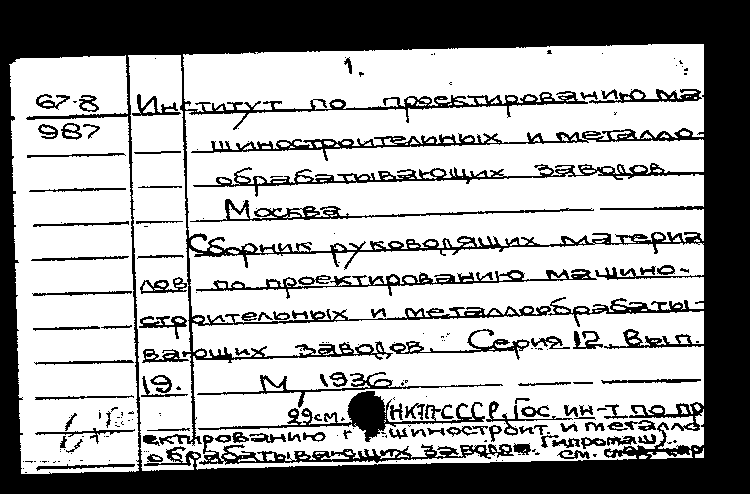 1.
67-8 Институт по проектированию ма
987 шиностроительных и металло-
обрабатывающих заводов
Москва.
Сборник руководящих материа
лов по проектированию машино-
строительных и металлообрабаты-
вающих заводов. Серия 12. Вып.
19. М, 1936.
29см. (НКТП-СССР, Гос. ин-т по пр
ектированию машиностроит. и металло-
обрабатывающих заводов. Гипромаш).
см. след. кар